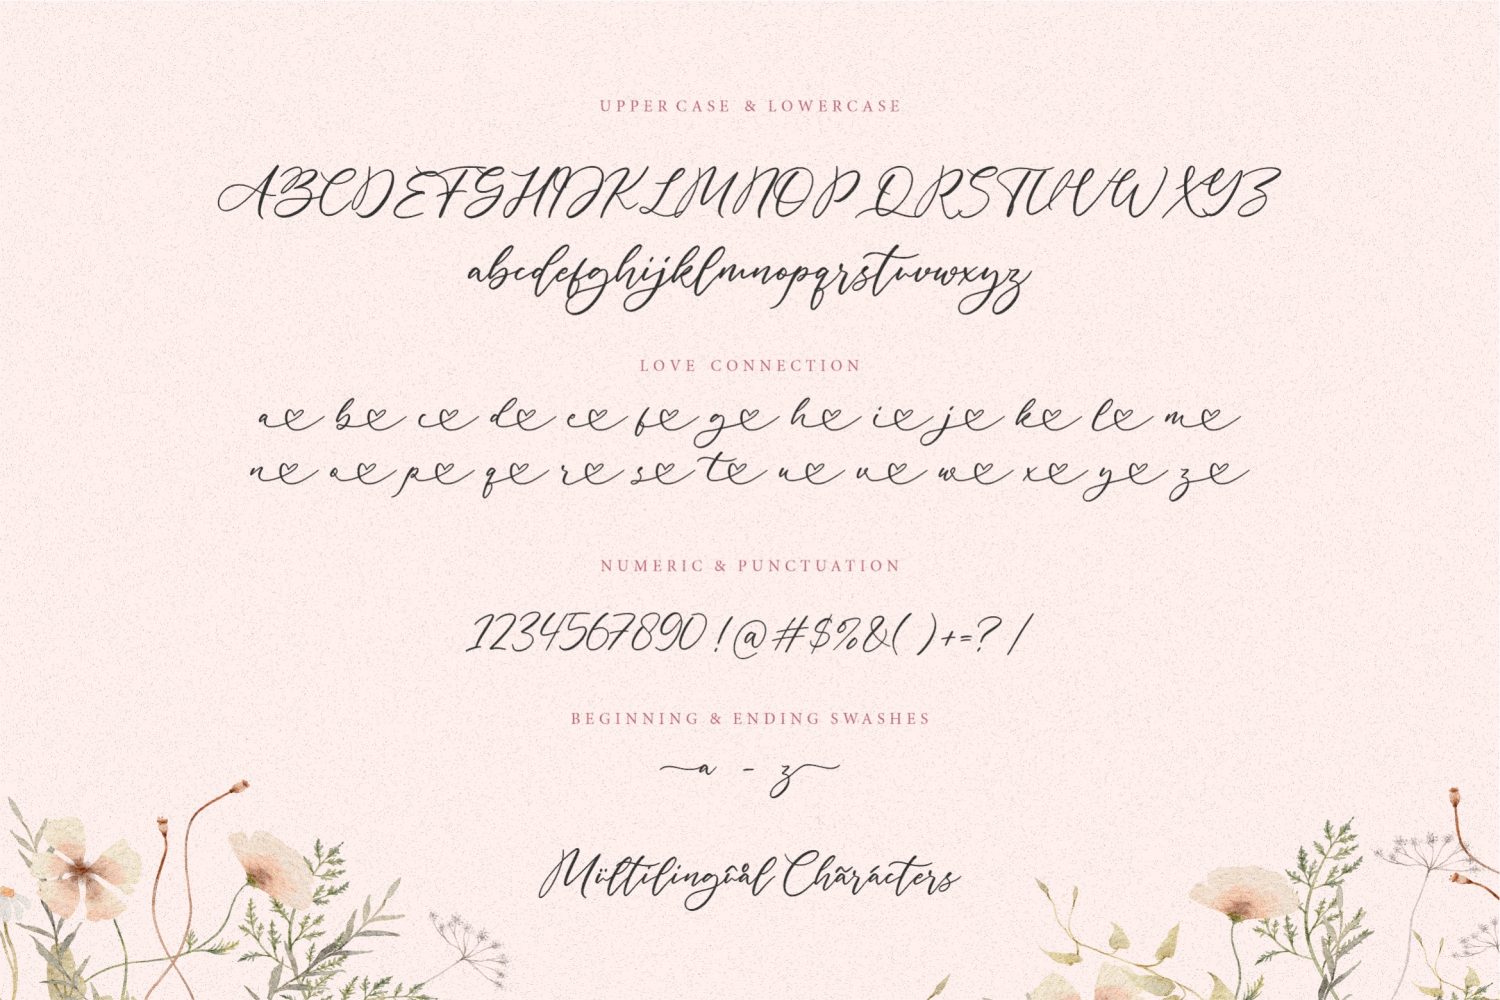 UPPERCASE & LOWERCASE
ABCDEFGHIJKLMNOPQRSTUVWXYZ
abcdefghijklmnopqrstuvwxyz
LOVE CONNECTION
a b c d e f g h i j k l m
n o p q r s t u v w x y z
NUMERIC & PUNCTUATION
1234567890!@#$%&()+=?/
BEGINNING & ENDING SWASHES
a - z
Mültilingûål Chãrácters